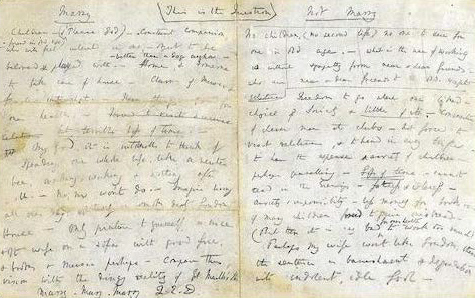 Marry
This is the Question
Not Marry
Children — (if it Please God) — Constant companion
who will feel interested in one
beloved & played with — better than a dog anyhow
Home, & someone
to take care of house — Charms of music &
female chit-chat — These things good for
one's health —
but terrible loss of time —
My God, it is intolerable to think of
spending one's whole life, like a neuter
bee, working, working, & nothing after
all — No, no won't do — Imagine living
all one's day solitary in smoky dirty London
House — Only picture to yourself a nice
soft wife on a sofa with good fire,
& books & music perhaps — Compare this
vision with the dingy reality of Gt. Marlbro' St.
Marry — Marry — Marry Q.E.D.
No children, (no second life), no one to care for
one in old age — What is the use of working
without sympathy from near & dear friends
who are near & dear friends to the old, except
relatives
Freedom to go where one liked —
choice of Society & little of it — Conversation
of clever men at clubs — Not forced to
visit relatives, & to bend in every trifle —
to have the expense & anxiety of children —
perhaps quarelling — Loss of time — cannot
read in the Evenings — fatness & idleness —
anxiety & responsibility — less money for books &c
if many children forced to gain one's bread —
(But then it is very bad for ones health to work too much)
Perhaps my wife won't like London; then
the sentence is banishment & degradation
into indolent, idle fool —